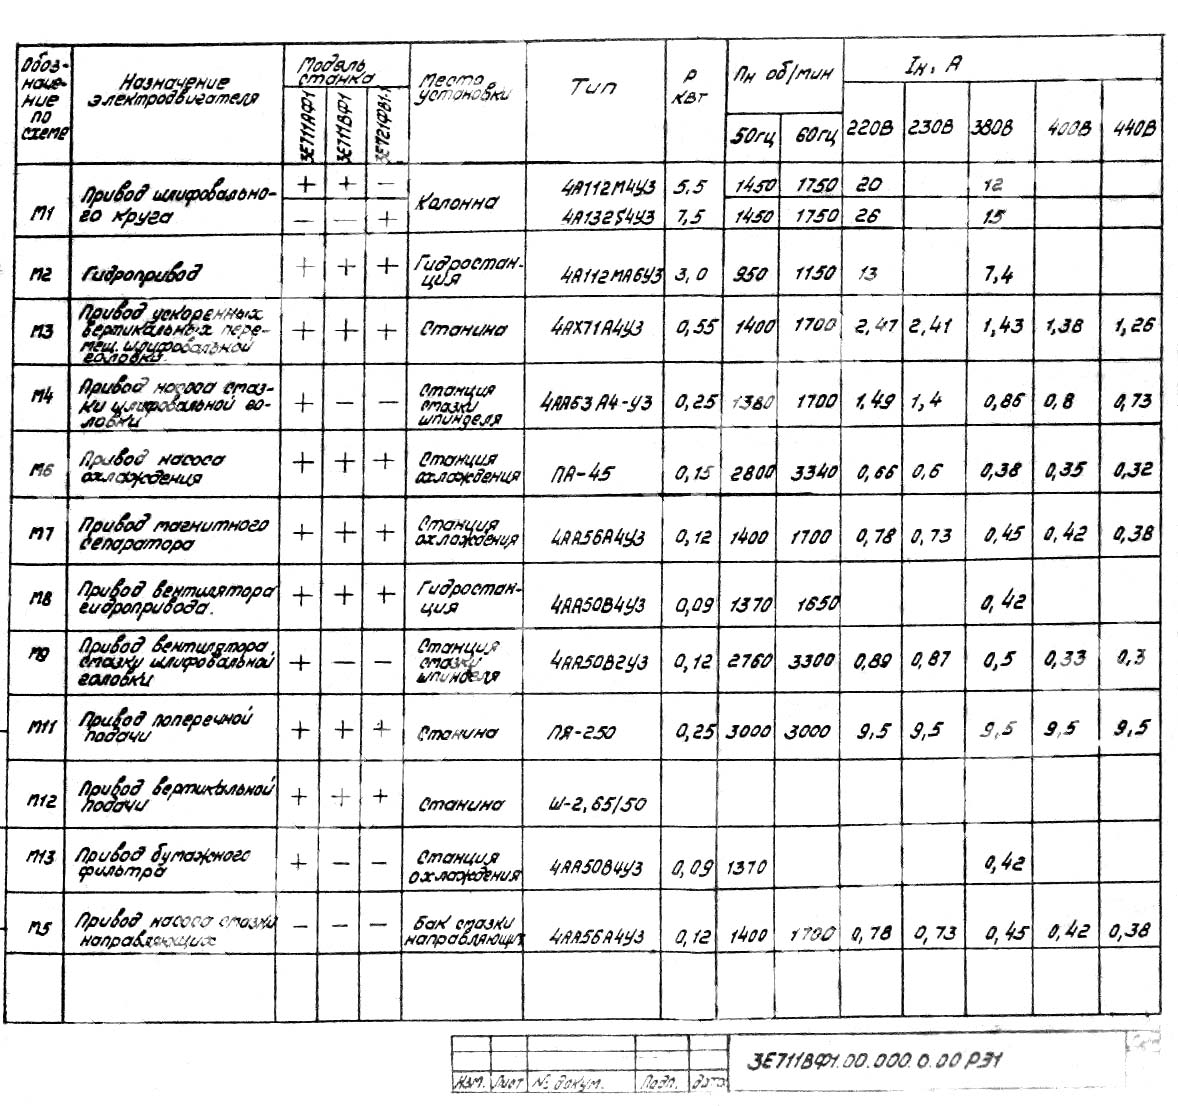 Обоз-
наче-
ние
по
схеме
Назначение
электродвигателя
Модель
станка
3Е711АФ1
3Е711ВФ1
3Е721ФВ1-1
Место
установки
Тип
Р
кВт
Пн об/мин
50гц 60гц
Iн, А
220В 230В 380В 400В 440В
М1
Привод шлифовально-
го круга
+ + −
− − +
Колонна
4А112М4У3 5,5 1450 1750 20 12
4А132S4У3 7,5 1450 1750 26 15
М2 Гидропривод + + +
Гидростан-
ция
4А112МА6У3 3,0 950 1150 13 7,4
М3
Привод ускоренных
вертикальных пере-
мещ. шлифовальной
головки.
+ + + Станина 4АХ71А4У3 0,55 1400 1700 2,47 2,41 1,43 1,38 1,26
М4
Привод насоса смаз-
ки шлифовальной го-
ловки
+ − −
Станция
смазки
шпинделя
4АА63А4-У3 0,25 1380 1700 1,49 1,4 0,86 0,8 0,73
М6
Привод насоса
охлаждения
+ + +
Станция
охлаждения
ПА-45 0,15 2800 3340 0,66 0,6 0,38 0,35 0,32
М7
Привод магнитного
сепаратора
+ + +
Станция
охлаждения
4АА56А4У3 0,12 1400 1700 0,78 0,73 0,45 0,42 0,38
М8
Привод вентилятора
гидропривода.
+ + +
Гидростан-
ция
4АА50В4У3 0,09 1370 1650 0,42
М9
Привод вентилятора
смазки шлифовальной
головки
+ − −
Станция
смазки
шпинделя
4АА50В2У3 0,12 2760 3300 0,89 0,87 0,5 0,33 0,3
М11
Привод поперечной
подачи
+ + + Станина ПЯ-250 0,25 3000 3000 9,5 9,5 9,5 9,5 9,5
М12
Привод вертикальной
подачи
+ + + Станина Ш-2,65/50
М13
Привод бумажного
фильтра
+ − −
Станция
охлаждения
4АА50В4У3 0,09 1370 0,42
М5
Привод насоса смазки
направляющих
− − −
Бак смазки
направляющих
4АА56А4У3 0,12 1400 1700 0,78 0,73 0,45 0,42 0,38
Изм. Лист № докум. Подп. дата
3Е711ВФ1.00.000.0.00 РЭ1